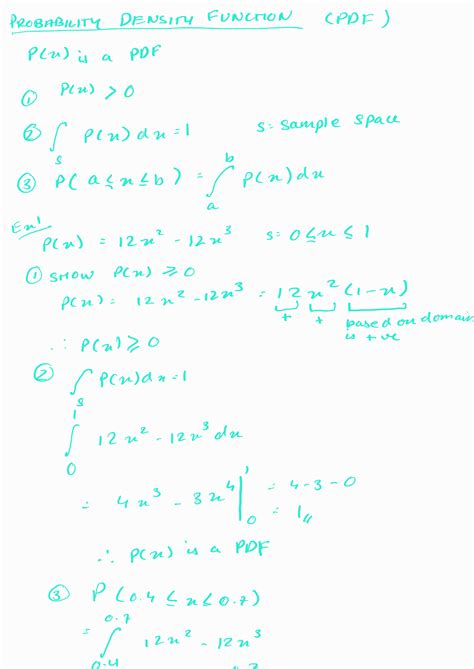 PROBABILITY DENSITY FUNCTION (PDF)
P(x) is a PDF
① P(x) > 0
② ∫ₛ P(x) dx = 1 s = sample space
③ P(a ≤ x ≤ b) = ∫ₐᵇ P(x) dx
Ex1
P(x) = 12x² - 12x³ s = 0 ≤ x ≤ 1
① SHOW P(x) ≥ 0
P(x) = 12x² - 12x³ = 12 x² (1 - x)
+ + based on domain is +ve
∴ P(x) ≥ 0
② ∫ₛ P(x) dx = 1
∫₀¹ 12x² - 12x³ dx
= 4x³ - 3x⁴ |₀¹ = 4 - 3 - 0
= 1
∴ P(x) is a PDF
③ P(0.4 ≤ x ≤ 0.7)
= ∫ 0.4 0.7 12x² - 12x³